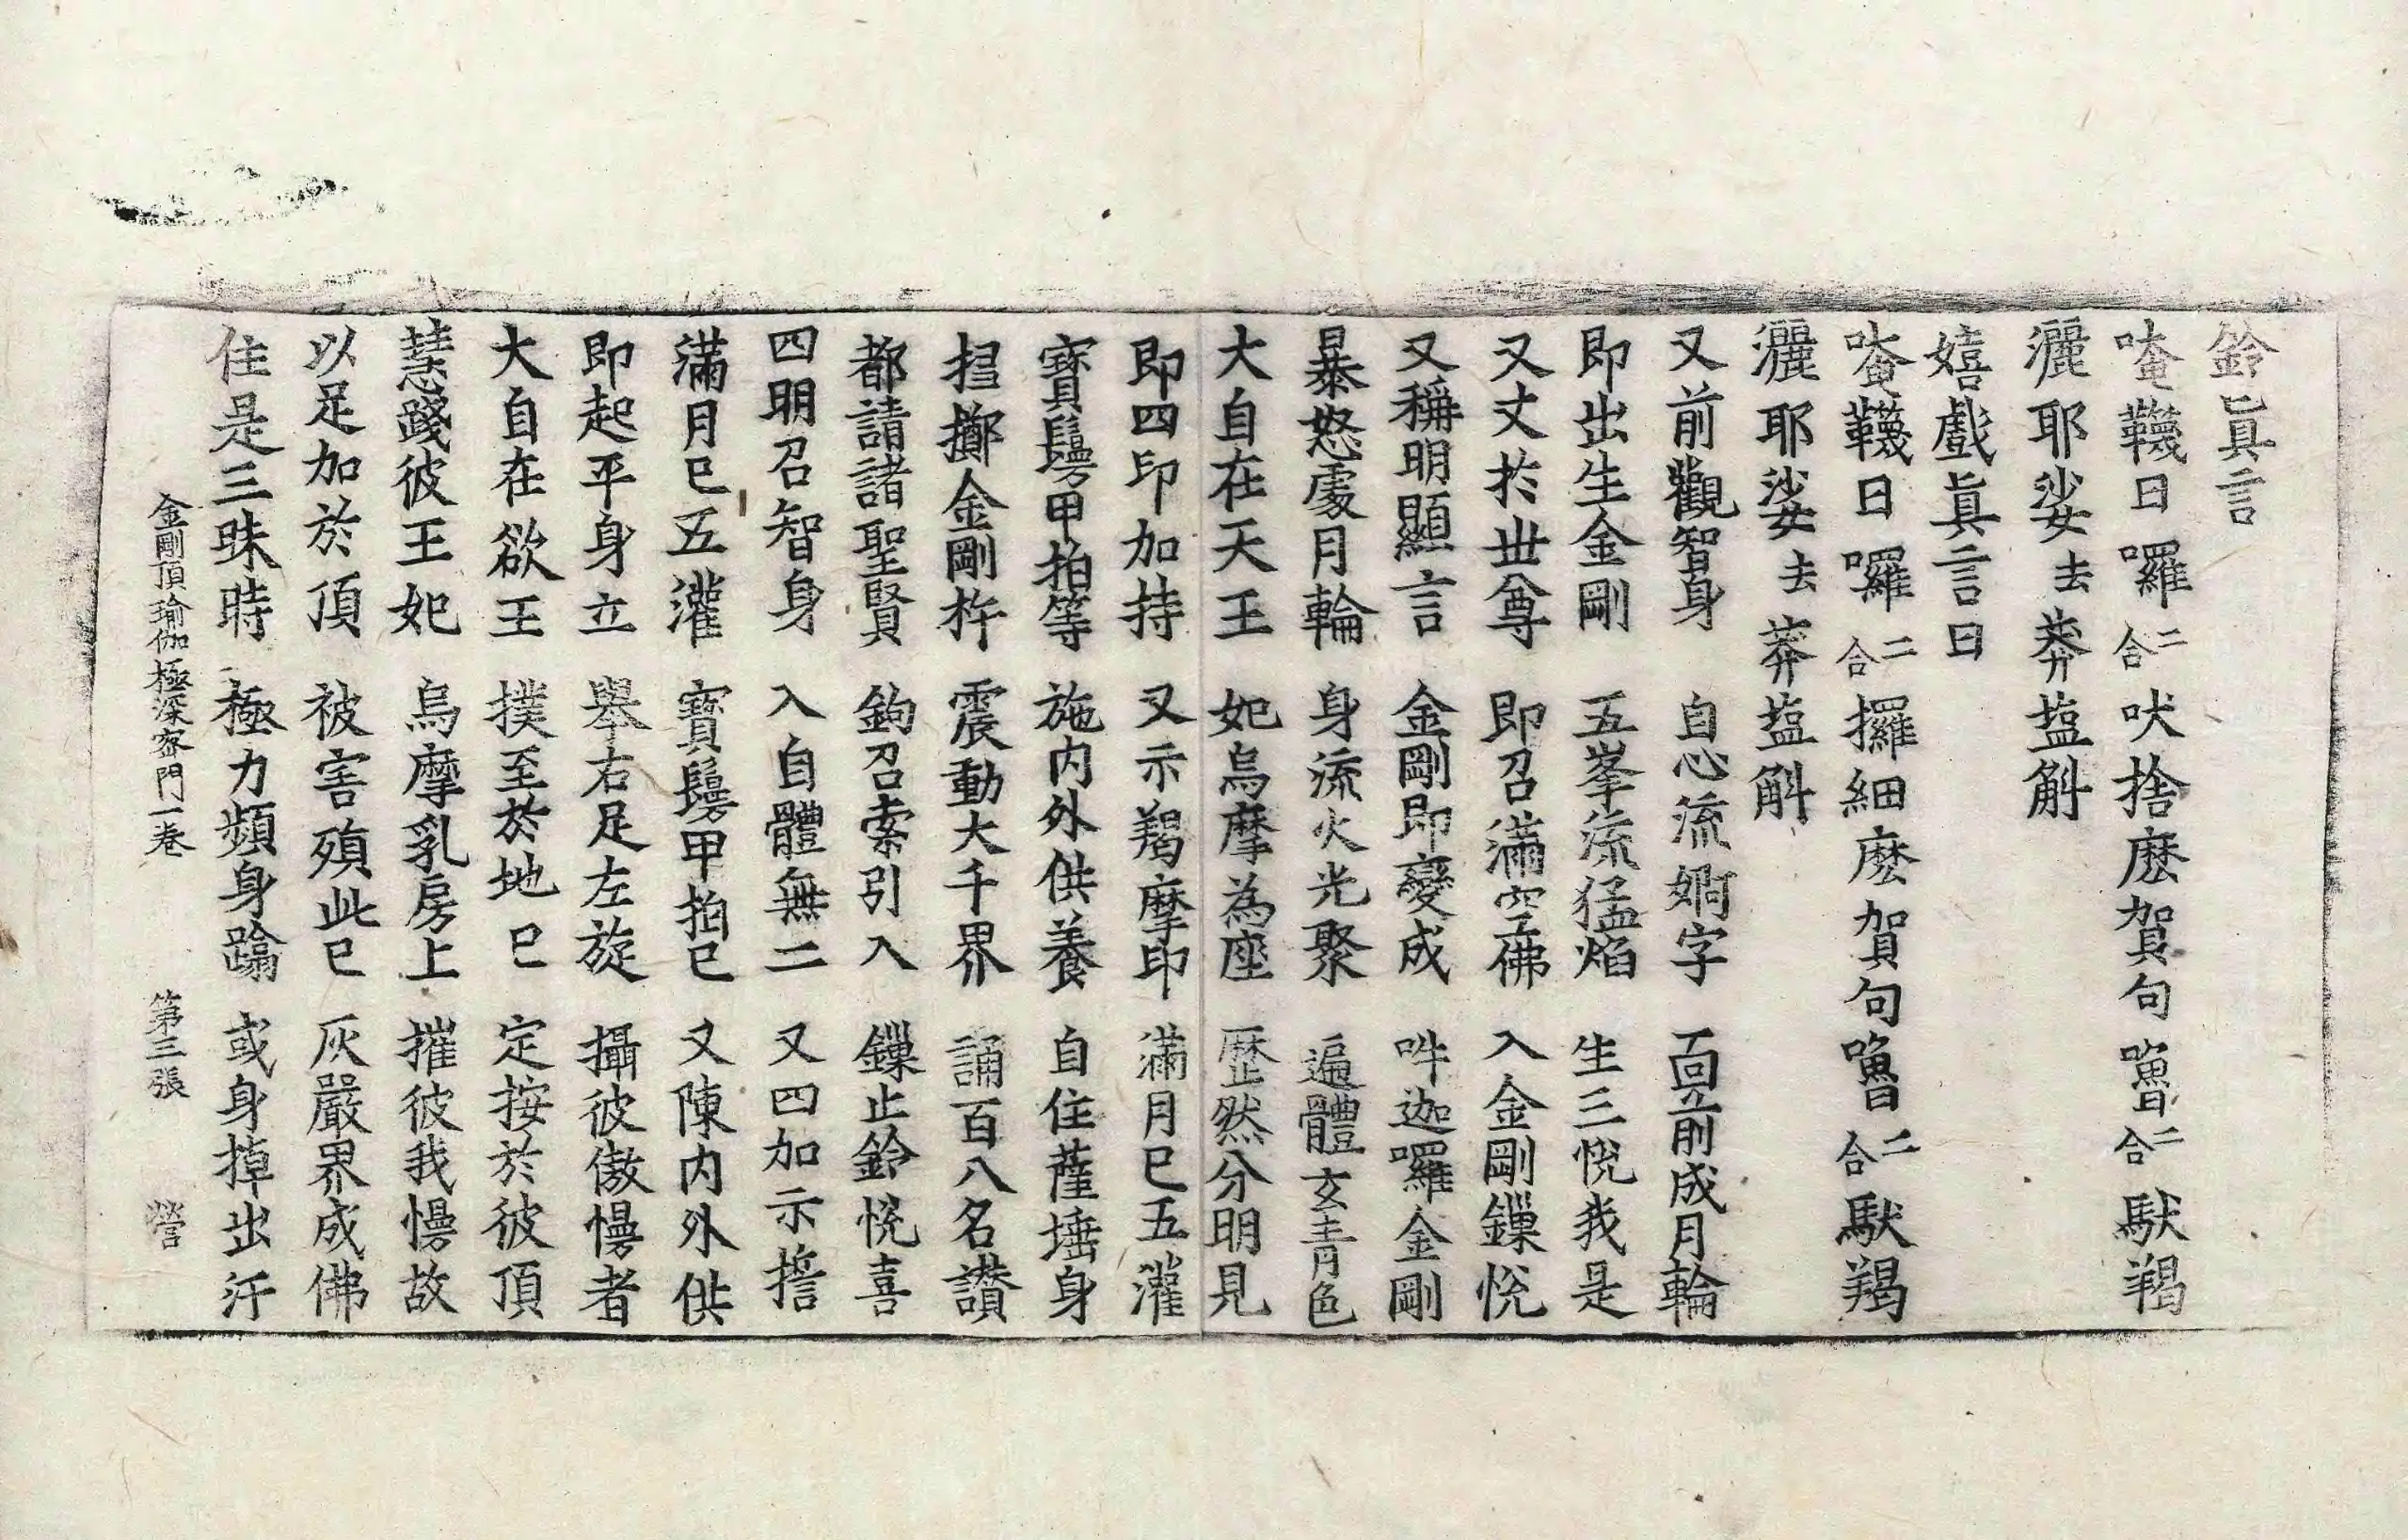 鈴眞言
唵韈日囉二合吠捨麽賀句嚕二合馱羯
灑耶娑去莽藍斛
嬉戲眞言曰
唵韈日囉二合攞細麽賀句嚕二合馱羯
灑耶娑去莽藍斛
又前觀智身　自心流婀字　面前成月輪
即出生金剛　五峯流猛焰　生三悅我是
又丈於世尊　即召滿空佛　入金剛鏁悅
又稱明顯言　金剛即變成　吽迦囉金剛
暴怒處月輪　身流火光聚　遍體玄青色
大自在天王　妃烏摩為座　歷然分明見
即四印加持　又示羯摩印　滿月已五灌
寶鬘甲拍等　施内外供養　自住薩埵身
搊擲金剛杵　震動大千界　誦百八名讃
都請諸聖賢　鉤召索引入　鏁止鈴悅喜
四明召智身　入自體無二　又四加示誓
滿月已五灌　寶鬘甲拍已　又陳内外供
即起平身立　舉右足左旋　攝彼傲慢者
大自在欲王　撲至於地已　定按於彼頂
慧踐彼王妃　烏摩乳房上　摧彼我慢故
以足加於頂　被害殞此已　灰嚴界成佛
住是三昧時　極力頻身踰　或身掉出汗
金剛頂瑜伽極深密門一卷　第三張　營